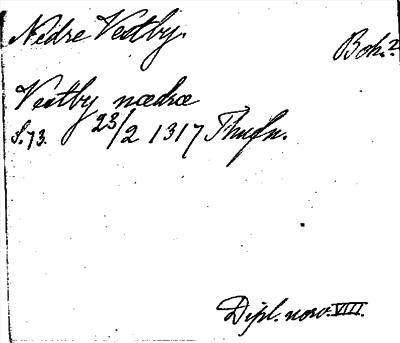 Nedre Vestby.
Boh. 2
Vestby nædræ
S. 73. 23/2 1317
Dipl. norv. VIII.